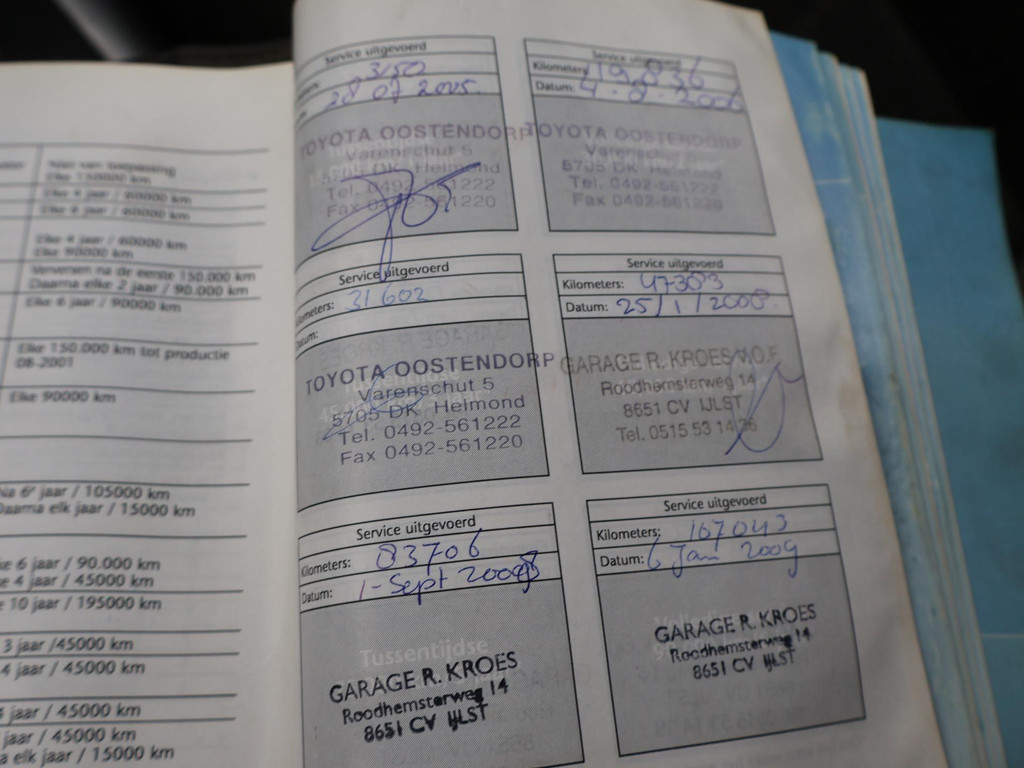 Niet van toepassing
Elke 150000 km
Elke 4 jaar / 60000 km
Elke 6 jaar / 60000 km
Elke 4 jaar / 60000 km
Elke 90000 km
Verversen na de eerste 150.000 km
Daarna elke 2 jaar / 90.000 km
Elke 6 jaar / 90000 km
Elke 150.000 km tot productie
08-2001
Elke 90000 km
Na 6e jaar / 105000 km
Daarna elk jaar / 15000 km
ke 6 jaar / 90.000 km
e 4 jaar / 45000 km
e 10 jaar / 195000 km
3 jaar /45000 km
4 jaar / 45000 km
jaar / 45000 km
jaar / 45000 km
a elk jaar / 15000 km
Service uitgevoerd
3150
28 07 2005
TOYOTA OOSTENDORP
Varenschut 5
5705 DK Helmond
Tel. 0492-561222
Fax 0492-561220
Service uitgevoerd
Kilometers: 19.836
Datum: 4.8.2006
TOYOTA OOSTENDORP
Varenschut 5
5705 DK Helmond
Tel. 0492-561222
Fax 0492-561220
Service uitgevoerd
ometers: 31602
Datum:
TOYOTA OOSTENDORP
Varenschut 5
5705 DK Helmond
Tel. 0492-561222
Fax 0492-561220
Service uitgevoerd
Kilometers: 47303
Datum: 25/1/2008
GARAGE R. KROES V.O.F.
Roodhemsterweg 14
8651 CV IJLST
Tel. 0515 53 14 26
Service uitgevoerd
Kilometers: 83706
Datum: 1-Sept 2008
Tussentijdse
GARAGE R. KROES
Roodhemsterweg 14
8651 CV IJLST
Service uitgevoerd
Kilometers: 167043
Datum: 6 Jan 2009
GARAGE R. KROES
Roodhemsterweg 14
8651 CV IJLST